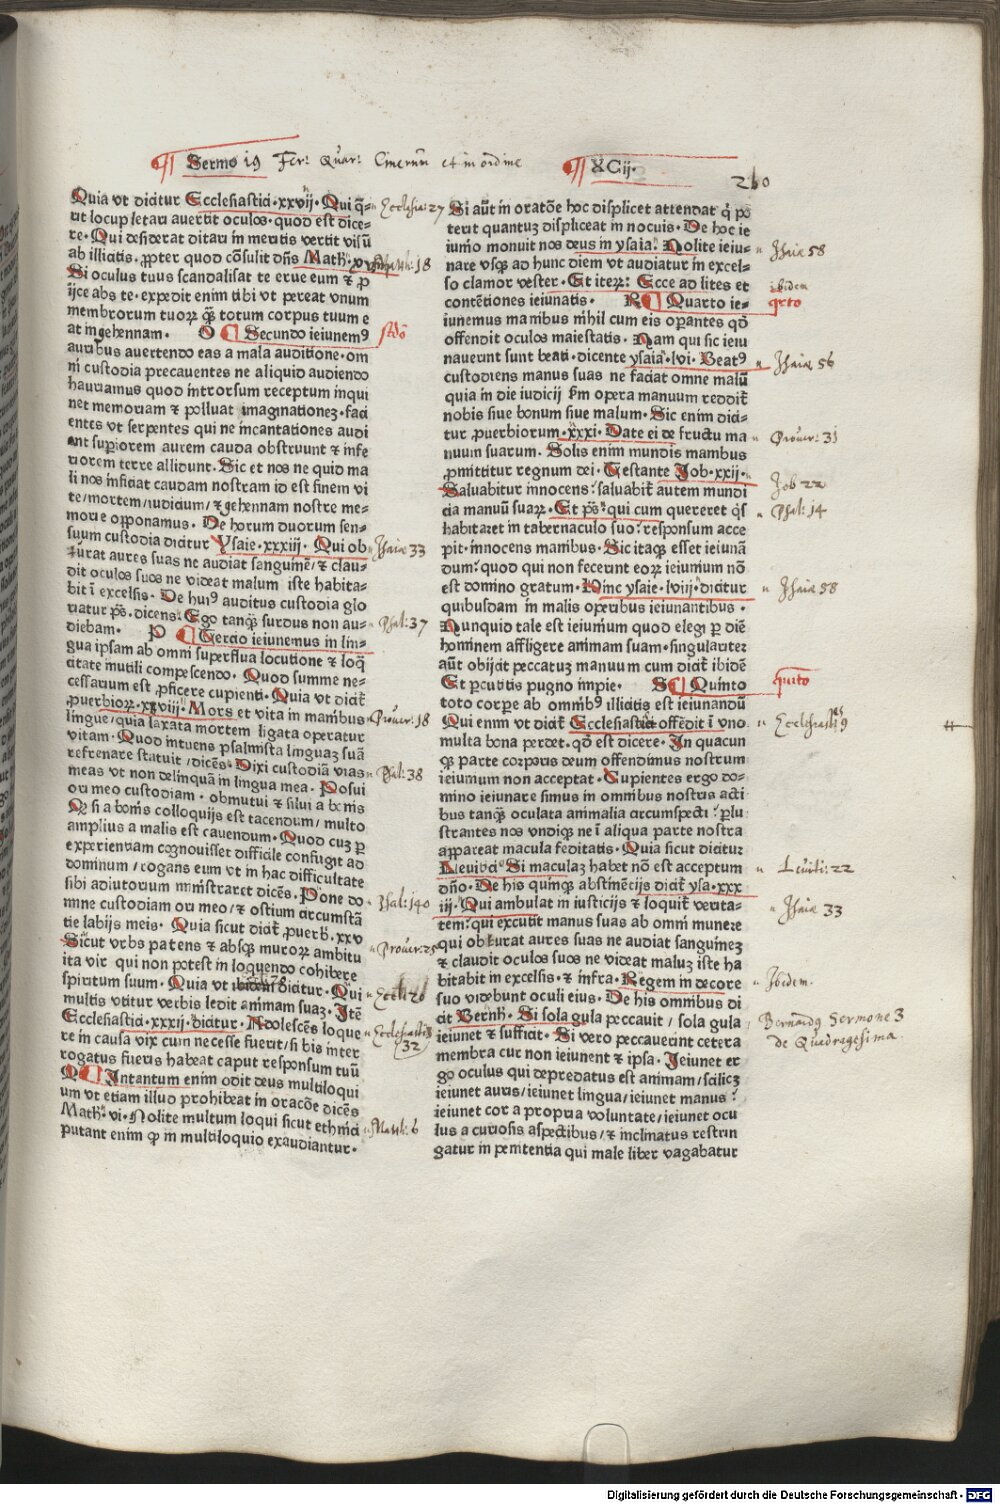 Sermo 19 Fer: Quar: Cinerum et in ordine
XCij.
210
Quia vt dicitur Ecclesiastici .xxvij. Qui q̄-
rit locupletari auertit oculos. quod est dice-
re. Qui desiderat ditari in meritis vertit visū
ab illicitis. ꝓpter quod cōsulit dn̄s Math.
Si oculus tuus scandalisat te erue eum ⁊ ꝓ
ijce abs te. expedit enim tibi vt pereat vnum
membrorum tuoꝝ q̄ȝ totum corpus tuum e
at in gehennam. O ¶ Secundo ieiunemꝯ
auribus auertendo eas a mala auditione. om
ni custodia precauentes ne aliquid audiendo
hauriamus quod introrsum receptum inqui
net memoriam ⁊ polluat imaginationeȝ. faci
entes vt serpentes qui ne incantationes audi
ant superiorem aurem cauda obstruunt ⁊ infe
riorem terre allidunt. Sic et nos ne quid ma
li nos inficiat caudam nostram id est finem vi
te/mortem/iudicium/⁊ gehennam nostre me-
morie opponamus. De horum duorum sen-
suum custodia dicitur Ysaie .xxxiij. Qui ob-
turat aures suas ne audiat sanguinē/ ⁊ clau-
dit oculos suos ne videat malum iste habita-
bit ī excelsis. De huiꝯ auditus custodia glo
riatur pš. dicens. Ego tanqȝ surdus non au-
diebam. P ¶ Tercio ieiunemus in lin-
gua ipsam ab omni superflua locutione ⁊ loq̄
citate inutili compescendo. Quod summe ne-
cessarium est ꝓficere cupienti. Quia vt dicit̄
ꝓuerbioꝝ .xviij. Mors et vita in manibus
lingue/quia laxata mortem ligata operatur
vitam. Quod intuens psalmista linguaȝ suā
refrenare statuit/dicēs. Dixi custodiā vias
meas vt non delinquā in lingua mea. Posui
ori meo custodiam. obmutui ⁊ silui a bonis
Qȝ si a bonis colloquijs est tacendum/multo
amplius a malis est cauendum. Quod cuȝ ꝑ
experientiam cognouisset difficile confugit ad
dominum/rogans eum vt in hac difficultate
sibi adiutorium ministraret dicēs. Pone do-
mine custodiam ori meo/⁊ ostium circumstā
tie labijs meis. Quia sicut dicit̄ ꝓuerb. xxv
Sicut vrbs patens ⁊ absqȝ muroꝝ ambitu
ita vir qui non potest in loquendo cohibere
spiritum suum. Quia vt ibidem dicitur. Qui
multis vtitur verbis ledit animam suaȝ. Itē
Ecclesiastici .xxxij. dicitur. Adolescēs loque
re in causa vix cum necesse fuerit/si bis inter
rogatus fueris habeat caput responsum tuū
Q ¶ Intantum enim odit deus multiloqui
um vt etiam illud prohibeat in oracōe dicēs
Math. vi. Nolite multum loqui sicut ethnici
putant enim ꝙ in multiloquio exaudiantur.
Ecclesia: 27
Math: 18
Isaiæ 33
Psal: 37
Prouer: 18
Psal: 38
Psal: 140
Prouer: 25
Eccli: 20
Ecclesiastici
(32)
Math: 6
Si aūt in oratōe hoc displicet attendat q̄ po
terit quantuȝ displiceat in nocuis. De hoc ie
iunio monuit nos deus in ysaia. Nolite ieiu-
nare vsqȝ ad hunc diem vt audiatur in excel-
so clamor vester. Et iteꝝ: Ecce ad lites et
contētiones ieiunatis. R ¶ Quarto ie-
iunemus manibus nihil cum eis operantes qd̄
offendit oculos maiestatis. Nam qui sic ieiu
nauerint sunt beati. dicente ysaia .lvi. Beatꝯ
custodiens manus suas ne faciat omne malū
quia in die iudicij ẜm opera manuum reddit̄
nobis siue bonum siue malum. Sic enim dici-
tur ꝓuerbiorum .xxxi. Date ei de fructu ma-
nuum suarum. Solis enim mundis manibus
ꝓmittitur regnum dei. Testante Job .xxij.
Saluabitur innocens: saluabit̄ autem mundi
cia manuū suaꝝ. Et pš. qui cum quereret q̄s
habitaret in tabernaculo suo: responsum acce
pit. innocens manibus. Sic itaqȝ esset ieiunā
dum. quod qui non fecerint eoꝝ ieiunium nō
est domino gratum. Hinc ysaie .lviij. dicitur
quibusdam in malis operibus ieiunantibus.
Nunquid tale est ieiunium quod elegi ꝑ diē
hominem affligere animam suam. singulariter
aūt obijcit peccatuȝ manuum cum dicit̄ ibidē
Et percutitis pugno impie. S ¶ Quinto
toto corpe ab omnibꝯ illicitis est ieiunandū
Qui enim vt dicit̄ Ecclesiasticꝰ offēdit ī vno
multa bona perdet. qd̄ est dicere. In quacun
qȝ parte corporis deum offendimus nostrum
ieiunium non acceptat. Cupientes ergo do-
mino ieiunare simus in omnibus nostris acti
bus tanqȝ oculata animalia circumspecti: ꝑlu
strantes nos vndiqȝ ne ī aliqua parte nostra
appareat macula feditatis. Quia sicut dicitur
Leuitici. Si maculaȝ habet nō est acceptum
dn̄o. De his quinqȝ abstinētijs dicit̄ ysa .xxx
iij. Qui ambulat in iusticijs ⁊ loquit̄ verita-
tem: qui excutit manus suas ab omni munere
qui obturat aures suas ne audiat sanguineȝ
⁊ claudit oculos suos ne videat maluȝ iste ha
bitabit in excelsis. ⁊ infra. Regem in decore
suo videbunt oculi eius. De his omnibus di
cit Bernħ. Si sola gula peccauit/sola gula
ieiunet ⁊ sufficit. Si vero peccauerint cetera
membra cur non ieiunent ⁊ ipsa. Jeiunet er
go oculus qui depredatus est animam/scilicȝ
ieiunet auris/ieiunet lingua/ieiunet manus:
ieiunet cor a propria voluntate/ieiunet ocu
lus a curiosis aspectibus/⁊ inclinatus restrin
gatur in penitentia qui male liber vagabatur
Isaiæ 58
ibidem
qrto
Isaiæ 56
Prouer: 31
Job 22
Psal: 14
Isaiæ 58
quinto
Ecclesiastes 9
Leuiti: 22
Isaiæ 33
Ibidem.
Bernardꝯ Sermone 3
de Quadragesima.
Digitalisierung gefördert durch die Deutsche Forschungsgemeinschaft - DFG